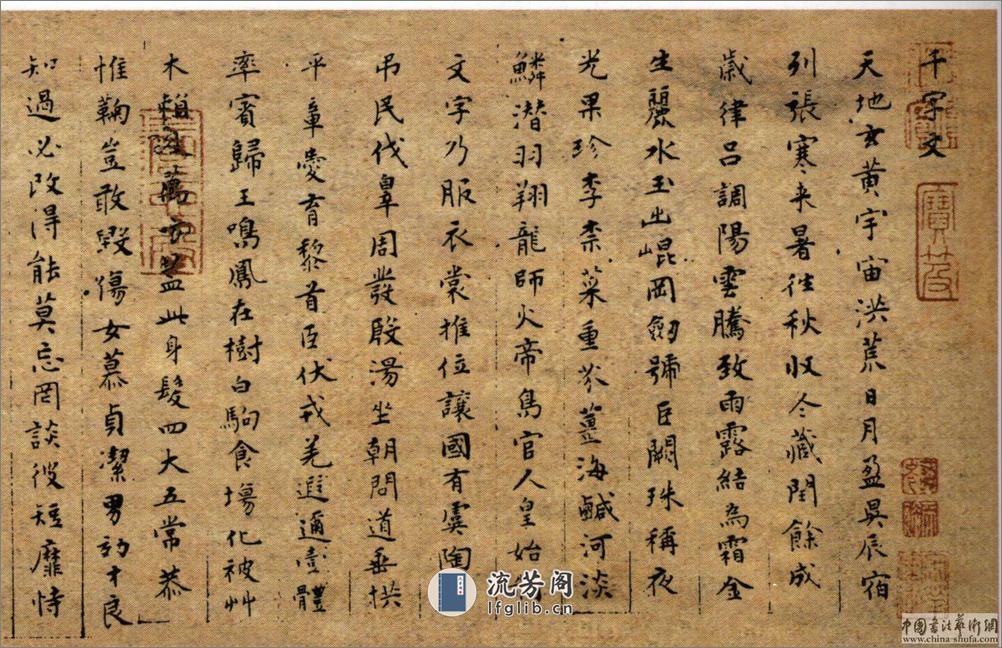 千字文
天地玄黄宇宙洪荒日月盈昃辰宿
列張寒来暑往秋收冬藏閏餘成
歲律吕調陽雲騰致雨露結為霜金
生麗水玉出崐岡劒號巨闕珠稱夜
光果珍李柰菜重芥薑海鹹河淡
鱗潜羽翔龍師火帝鳥官人皇始
文字乃服衣裳推位讓國有虞陶
吊民伐辠周發殷湯坐朝問道垂拱
平章愛育黎首臣伏戎羌遐邇壹體
率賓歸王鳴鳳在樹白駒食場化被艸
木賴及萬方盖此身髮四大五常恭
惟鞠豈敢毀傷女慕貞潔男効才良
知過必改得能莫忘罔談彼短靡恃
流芳阁
lfglib.cn
中國書法藝術網
www.china-shufa.com